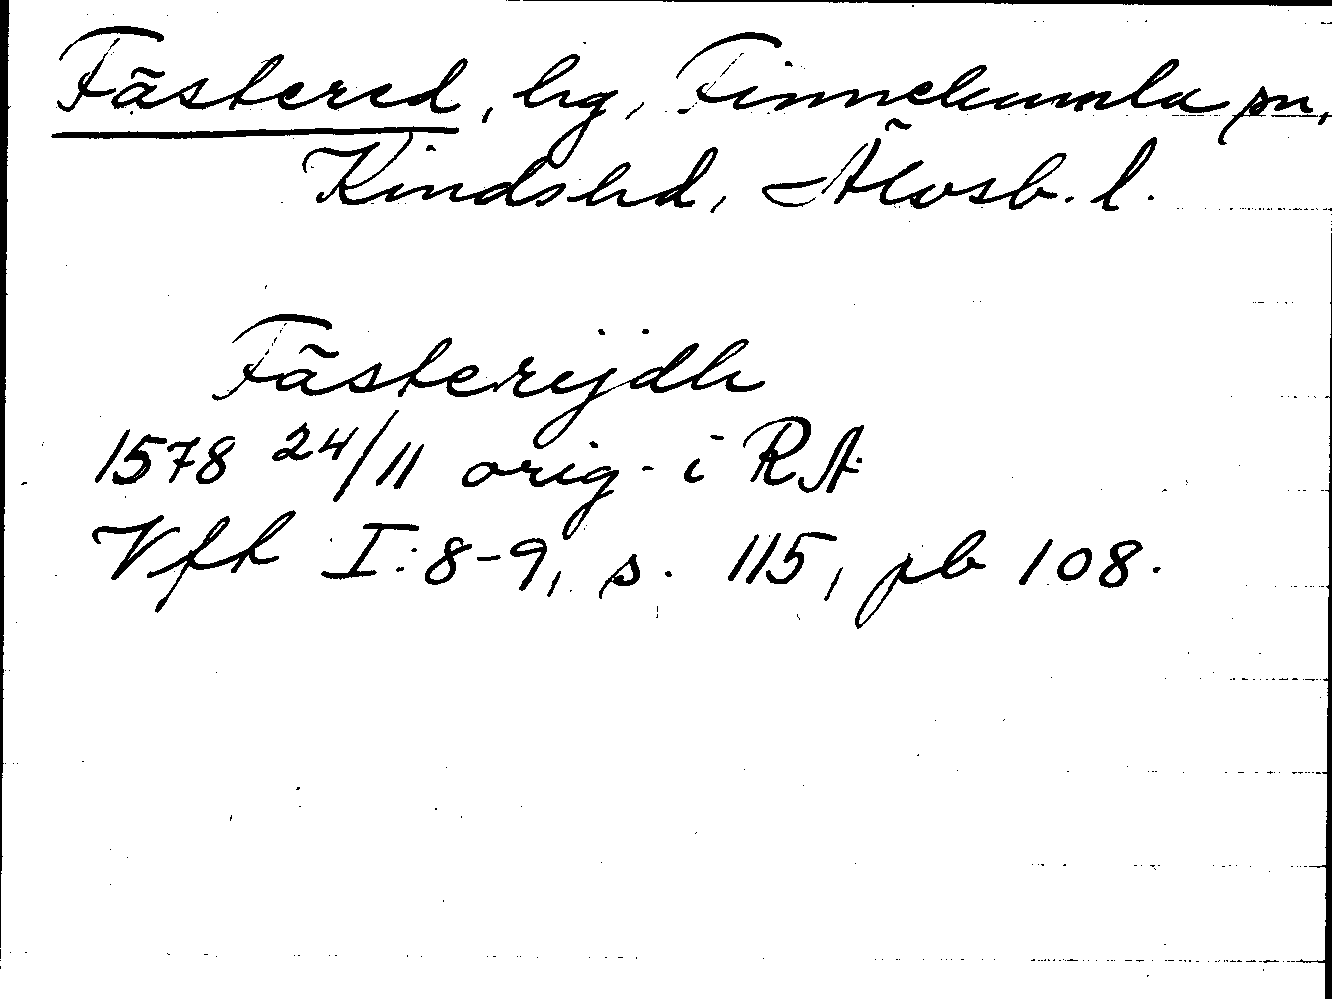 Fästered, hg, Finnekumla sn,
Kindshd, Älvsb. l.
Fästerijdh
1578 24/11 orig. i RA
Vfh I:8-9, s. 115, pb 108.